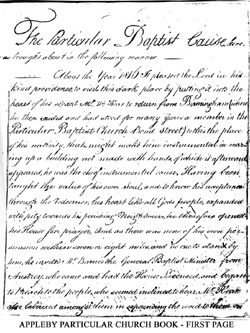 The Particular Baptist Cause here,
brought about in the following manner
About the Year 1816 It pleased the Lord in his
kind providence to visit this dark place by putting it into the
heart of his servt Mr to return from Birmingham (where
he then resided and had stood for many years a member in the
Particular Baptist Church Bond street) to this the place
of his nativity, that might make him instrumental in rear-
ing up a building not made with hands, of which it afterward
appeared, he was the chief instrumental cause. Having been
taught the value of his own soul, and to know his acceptance
through the redeemer, his heart like all Gods people, expanded
with pity towards his perishing Neighbours, he therefore opened
his House for prayer, and as there was none of his own per-
suasion within seven or eight miles, and no one to stand by
him, he invited Mr Barnes the General Baptist Minister from
Austrey, who came and had the House licenced, and began
to Preach to the people, who seemed inclined to hear. Mr
also laboured amongst them in expounding the word to them on
APPLEBY PARTICULAR CHURCH BOOK - FIRST PAGE